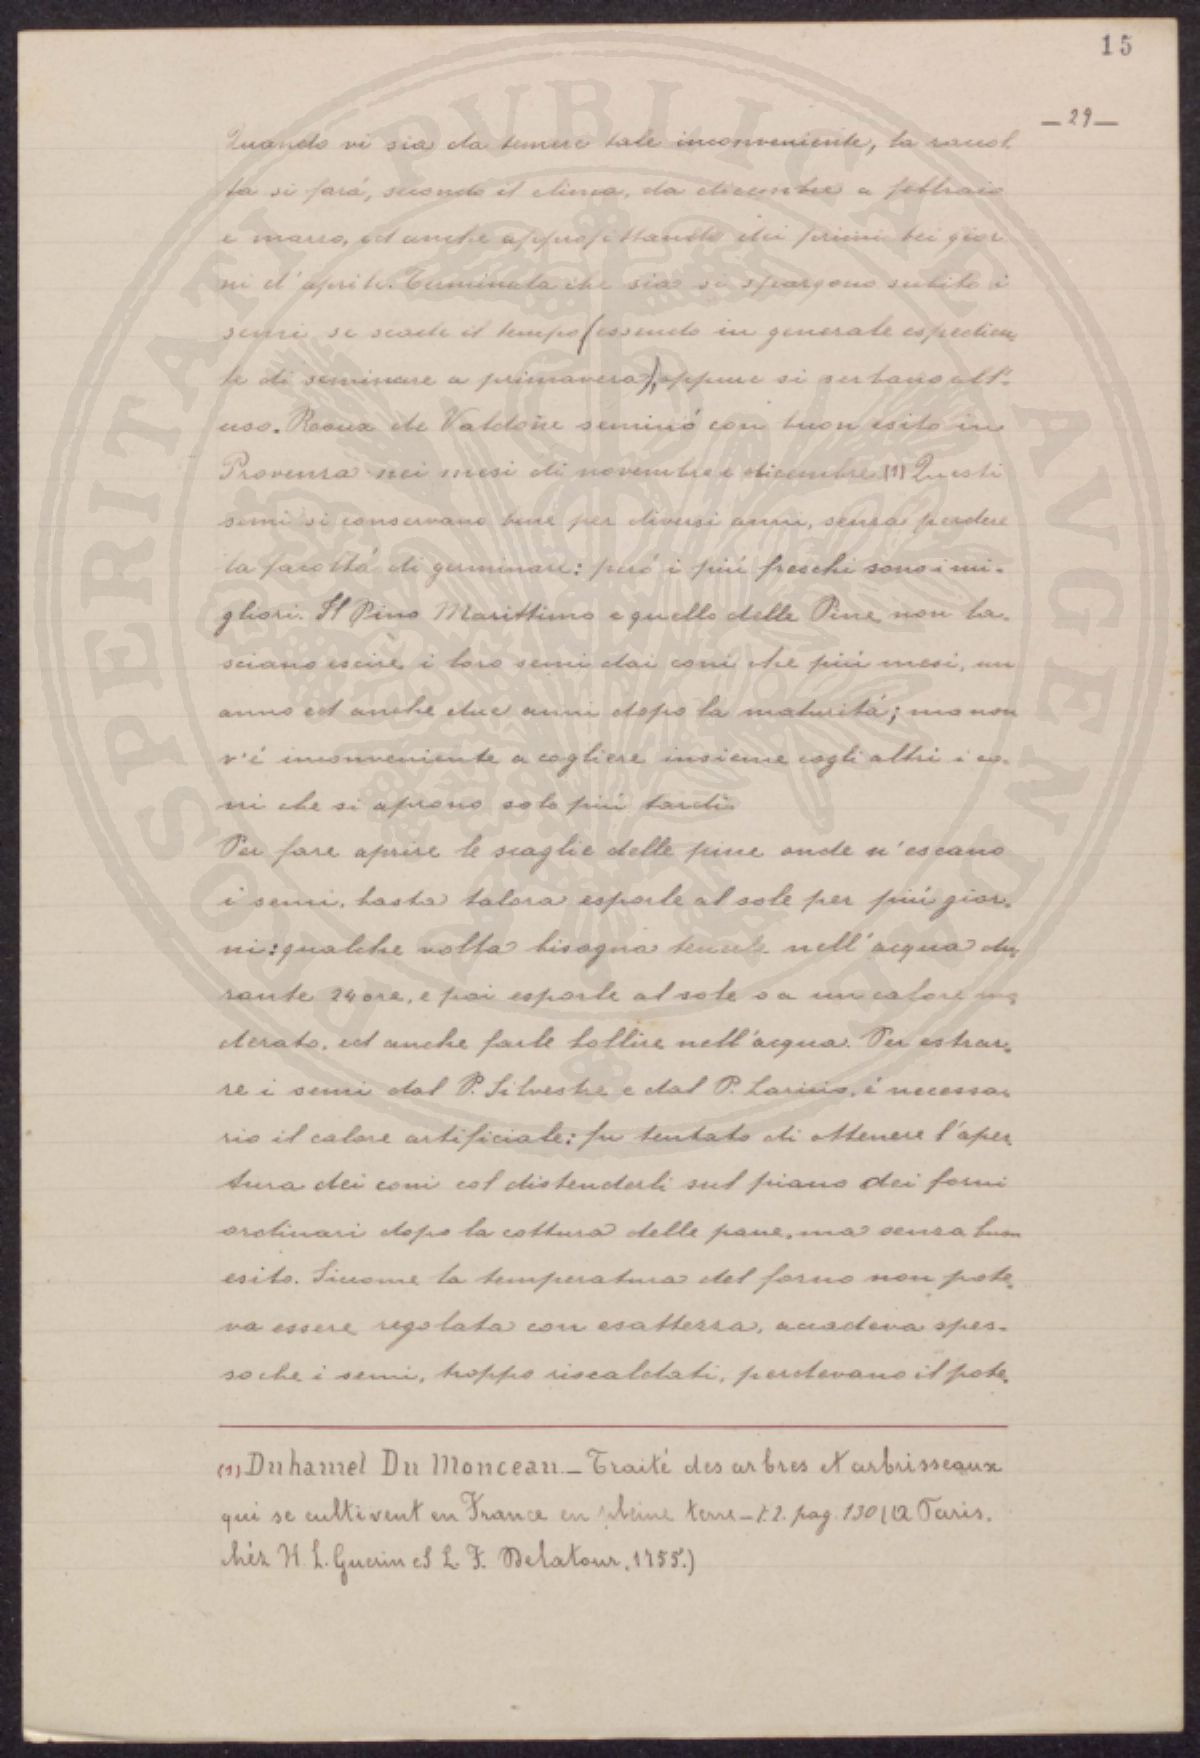 15
— 29 —
Quando vi sia da temere tale inconveniente, la raccol
ta si farà, secondo il clima, da dicembre a febbraio
e marzo, ed anche approfittando dei primi bei gior
ni d'aprile. Terminata che sia si spargono subito i
semi se scade il tempo (essendo in generale espedien
te di seminare a primavera), oppure si serbano all'
uso. Roux de Valdone seminó con buon esito in
Provenza nei mesi di novembre e dicembre (1) Questi
semi si conservano bene per diversi anni, senza perdere
la facoltá di germinare: peró i piú freschi sono i mi-
gliori. Il Pino Marittimo e quello delle Pine non la-
sciano escire i loro semi dai coni che piú mesi, un
anno ed anche due anni dopo la maturitá; ma non
v'é inconveniente a cogliere insieme cogli altri i co-
ni che si aprono solo piú tardi.
Per fare aprire le scaglie delle pine onde n'escano
i semi, basta talora esporle al sole per piú gior-
ni: qualche volta bisogna tenerle nell'acqua du-
rante 24 ore, e poi esporle al sole o a un calore mo-
derato, ed anche farle bollire nell'acqua. Per estrar-
re i semi dal P. Silvestre e dal P. Laricio, é necessa-
rio il calore artificiale: fu tentato di ottenere l'aper-
tura dei coni col distenderli sul piano dei forni
ordinari dopo la cottura delle pane, ma senza buon
esito. Siccome la temperatura del forno non pote-
va essere regolata con esattezza, accadeva spes-
so che i semi, troppo riscaldati, perdevano il pote-
(1) Duhamel Du Monceau — Traité des arbres et arbrisseaux
qui se cultivent en France en pleine terre — t. 2. pag. 130 (A Paris,
chéz H. L. Guerin et L. F. Delatour, 1755.)
POSPERITATI PVBLICAE AVGENDAE